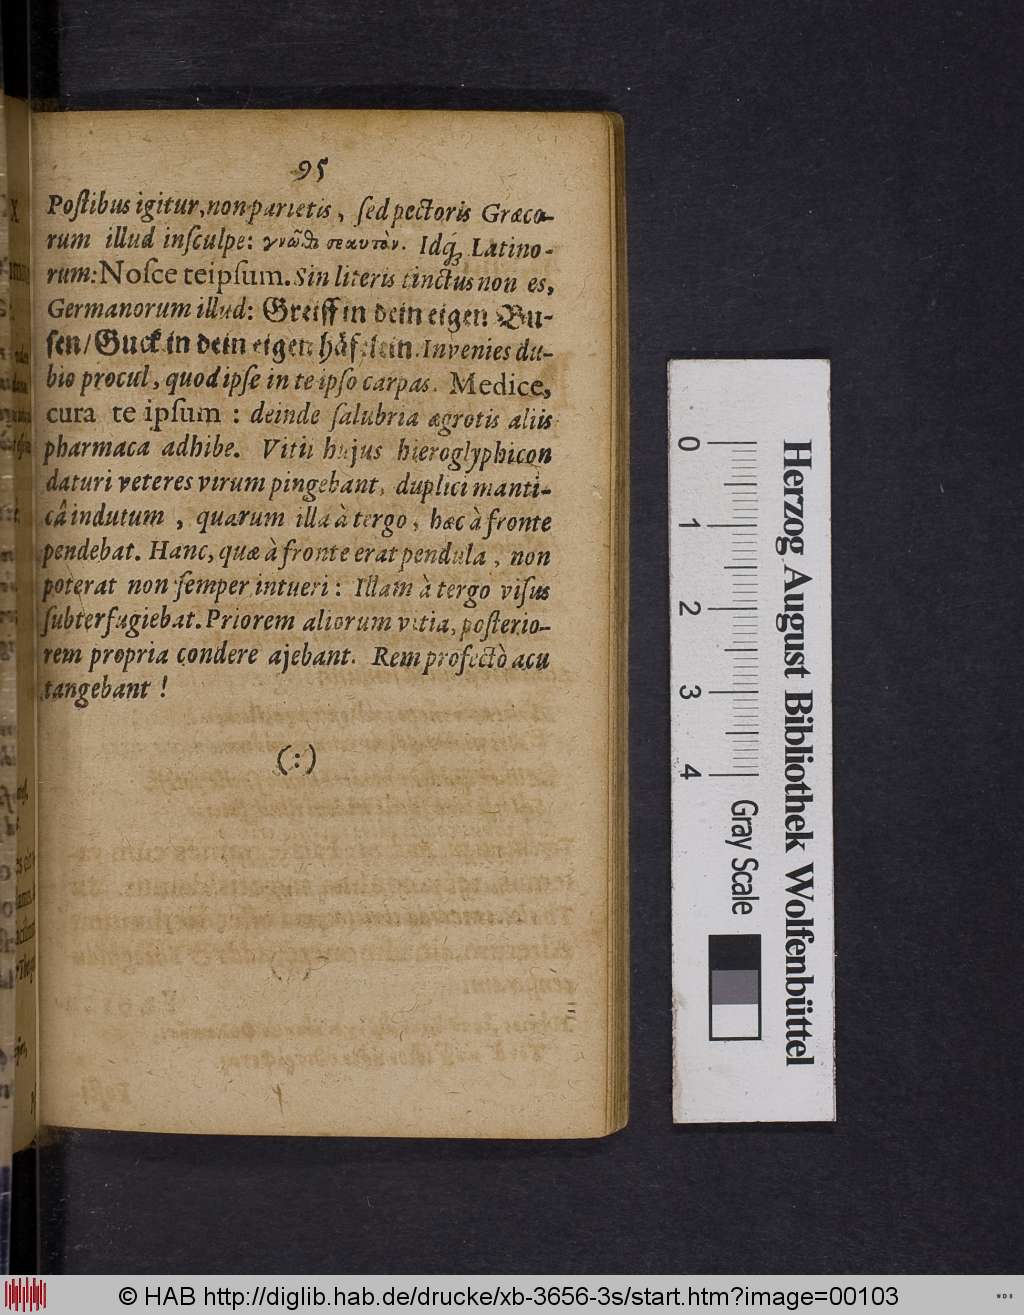 95
Poſtibus igitur, non parietis, ſed pectoris Græco-
rum illud inſculpe: γνῶθι σεαυτὸν. Idq́; Latino-
rum: Noſce teipſum. Sin literis tinctus non es,
Germanorum illud: Greiff in dein eigen Bu-
ſen/Guck in dein eigen häfelein. Invenies du-
bio procul, quod ipſe in te ipſo carpas. Medice,
cura te ipſum: deinde ſalubria ægrotis aliis
pharmaca adhibe. Vitii hujus hieroglyphicon
daturi veteres virum pingebant, duplici manti-
câ indutum, quarum illa à tergo, hæc à fronte
pendebat. Hanc, quæ à fronte erat pendula, non
poterat non ſemper intueri: Illam à tergo viſus
ſubterfugiebat. Priorem aliorum vitia, poſterio-
rem propria condere ajebant. Rem profectò acu
tangebant!
(:)
0 1 2 3 4
Gray Scale
Herzog August Bibliothek Wolfenbüttel
© HAB http://diglib.hab.de/drucke/xb-3656-3s/start.htm?image=00103